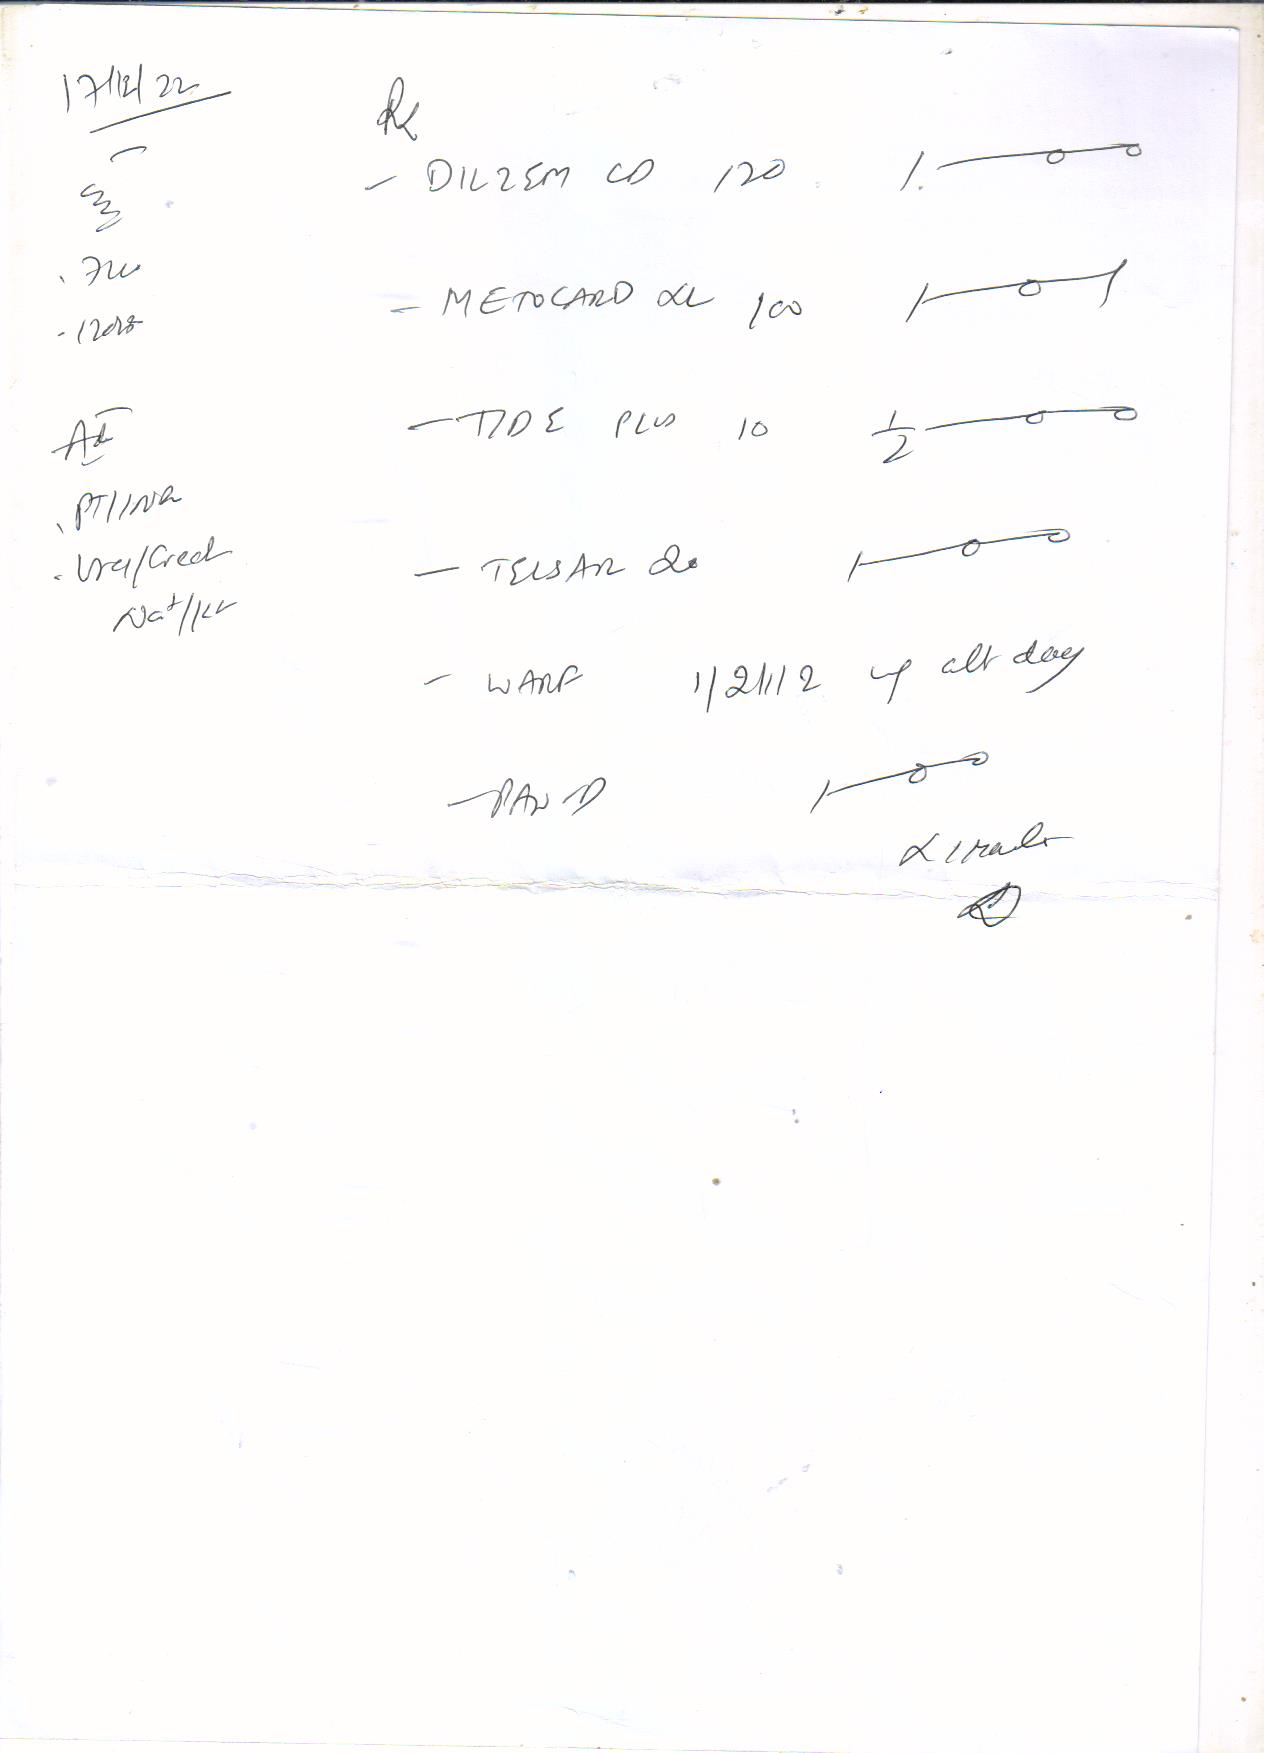 17/12/22
Rx
- DILZEM CD 120 1 - 0 - 0
- METOCARD XL 100 1 - 0 - 1
- TIDE PLUS 10 1/2 - 0 - 0
- TELSAR 20 1 - 0 - 0
- WARF 1/2 alt day
- PAN D 1 - 0 - 0
Adv
. PT/INR
. Urea/Creat
Na+/K+